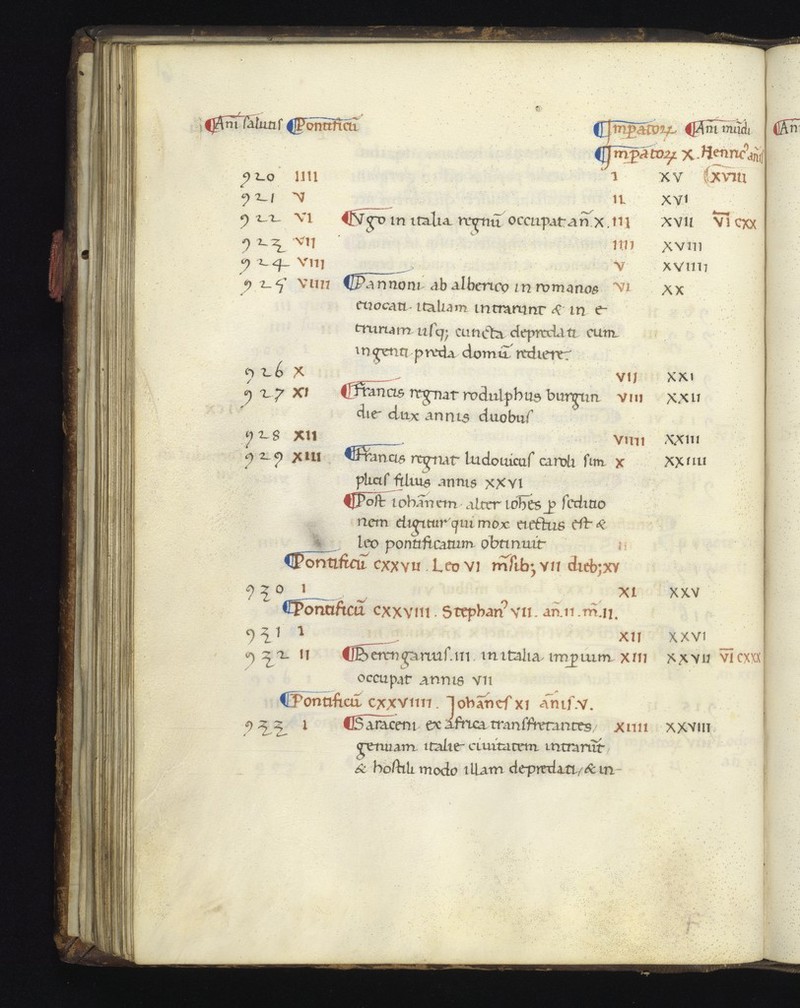 Anī salutıſ Pontıficū Imꝑatoꝝ Anī mūdi
Imꝑatoꝝ X. Henricꝰ
920 IIII I XV XVIII
921 V II XVI
922 VI Vgo in italia regnū occupat añ. X. III XVII VI CXX
923 VII IIII XVIII
924 VIII V XVIIII
925 VIIII Pannoni ab alberico in romanos VI XX
euocati italiam intrarunt & in e-
truriam uſq; cuncta depredati cum
ingenti preda domū rediere:
926 X VII XXI
927 XI Francis regnat rodulphus burgun VIII XXII
die dux annis duobuſ
928 XII VIIII XXIII
929 XIII Francis regnat ludouicuſ caroli ſim X XXIIII
pliciſ filius annis XXVI
Poſt iohānem alter iohēs ꝑ ſeditio
nem eligitur qui mox eiectus eſt &
leo pontificatum obtinuit
Pontificū CXXVII. Leo VI mſib; VII dieb; XV
930 I XI XXV
Pontificū CXXVIII. Stephanꝰ VII. añ. II. m̄. II.
931 I XII XXVI
932 II Berengariuſ. III. in italia imperium XIII XXVII VI CXXX
occupat annis VII
Pontificū CXXVIIII. Johāneſ XI aniſ. V.
933 I Saraceni ex africa tranſfretantes XIIII XXVIII
genuam italie ciuitatem intrarūt
& hoſtili modo illam depredati, & in-